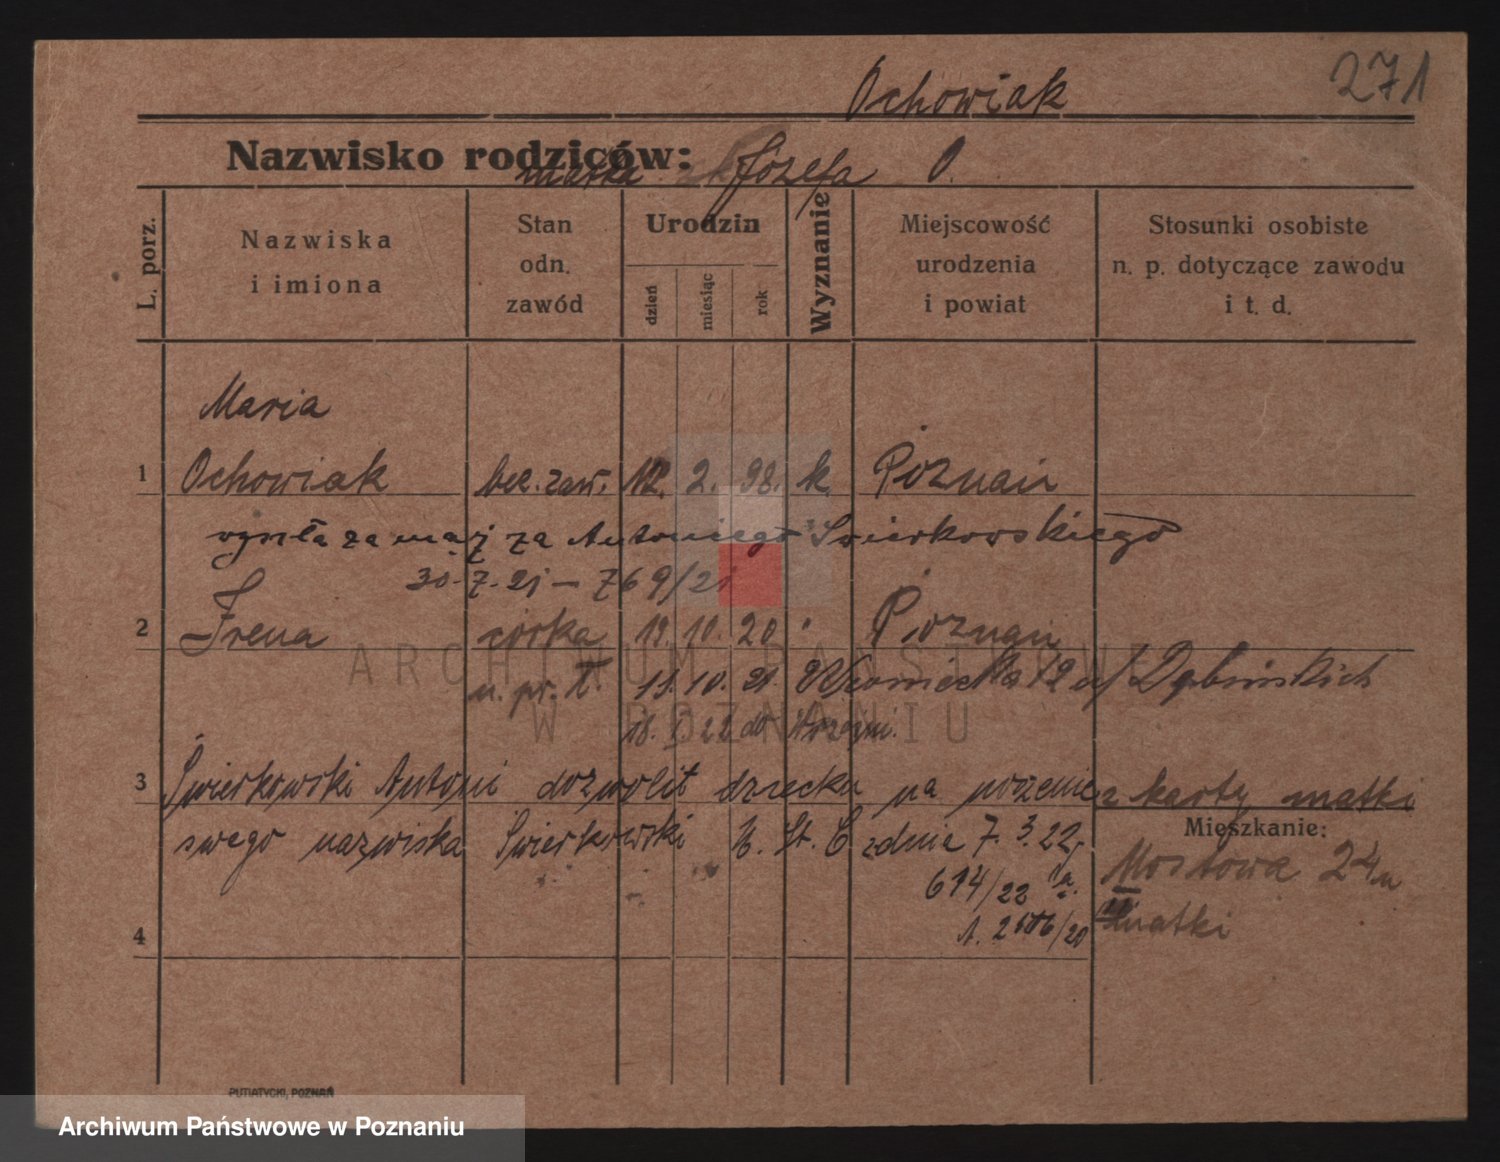 271
Ochowiak
Nazwisko rodziców:
matka Józefa O.
L. porz.
Nazwiska i imiona
Stan odn. zawód
Urodzin
dzień
miesiąc
rok
Wyznanie
Miejscowość urodzenia i powiat
Stosunki osobiste n. p. dotyczące zawodu i t. d.
Maria
1 Ochowiak bez. zaw. 12. 2. 98. k. Poznań
wyszła za mąż za Antoniego Świerkowskiego
30.7.21 – 769/21
2 Irena córka 19. 10. 20 Poznań
u. pr. T. 11. 10. 21. 12 u/ Dąbińskich
18. 1. 22 do
3 Świerkowski Antoni dozwolił dziecku na noszenie z karty matki
swego nazwiska Świerkowski U. St. C z dnia 7. 3. 22 r
Mieszkanie:
614/22
Mostowa 24 u
matki
4
PUTIATYCKI, POZNAŃ
ARCHIWUM PAŃSTWOWE
W POZNANIU
Archiwum Państwowe w Poznaniu